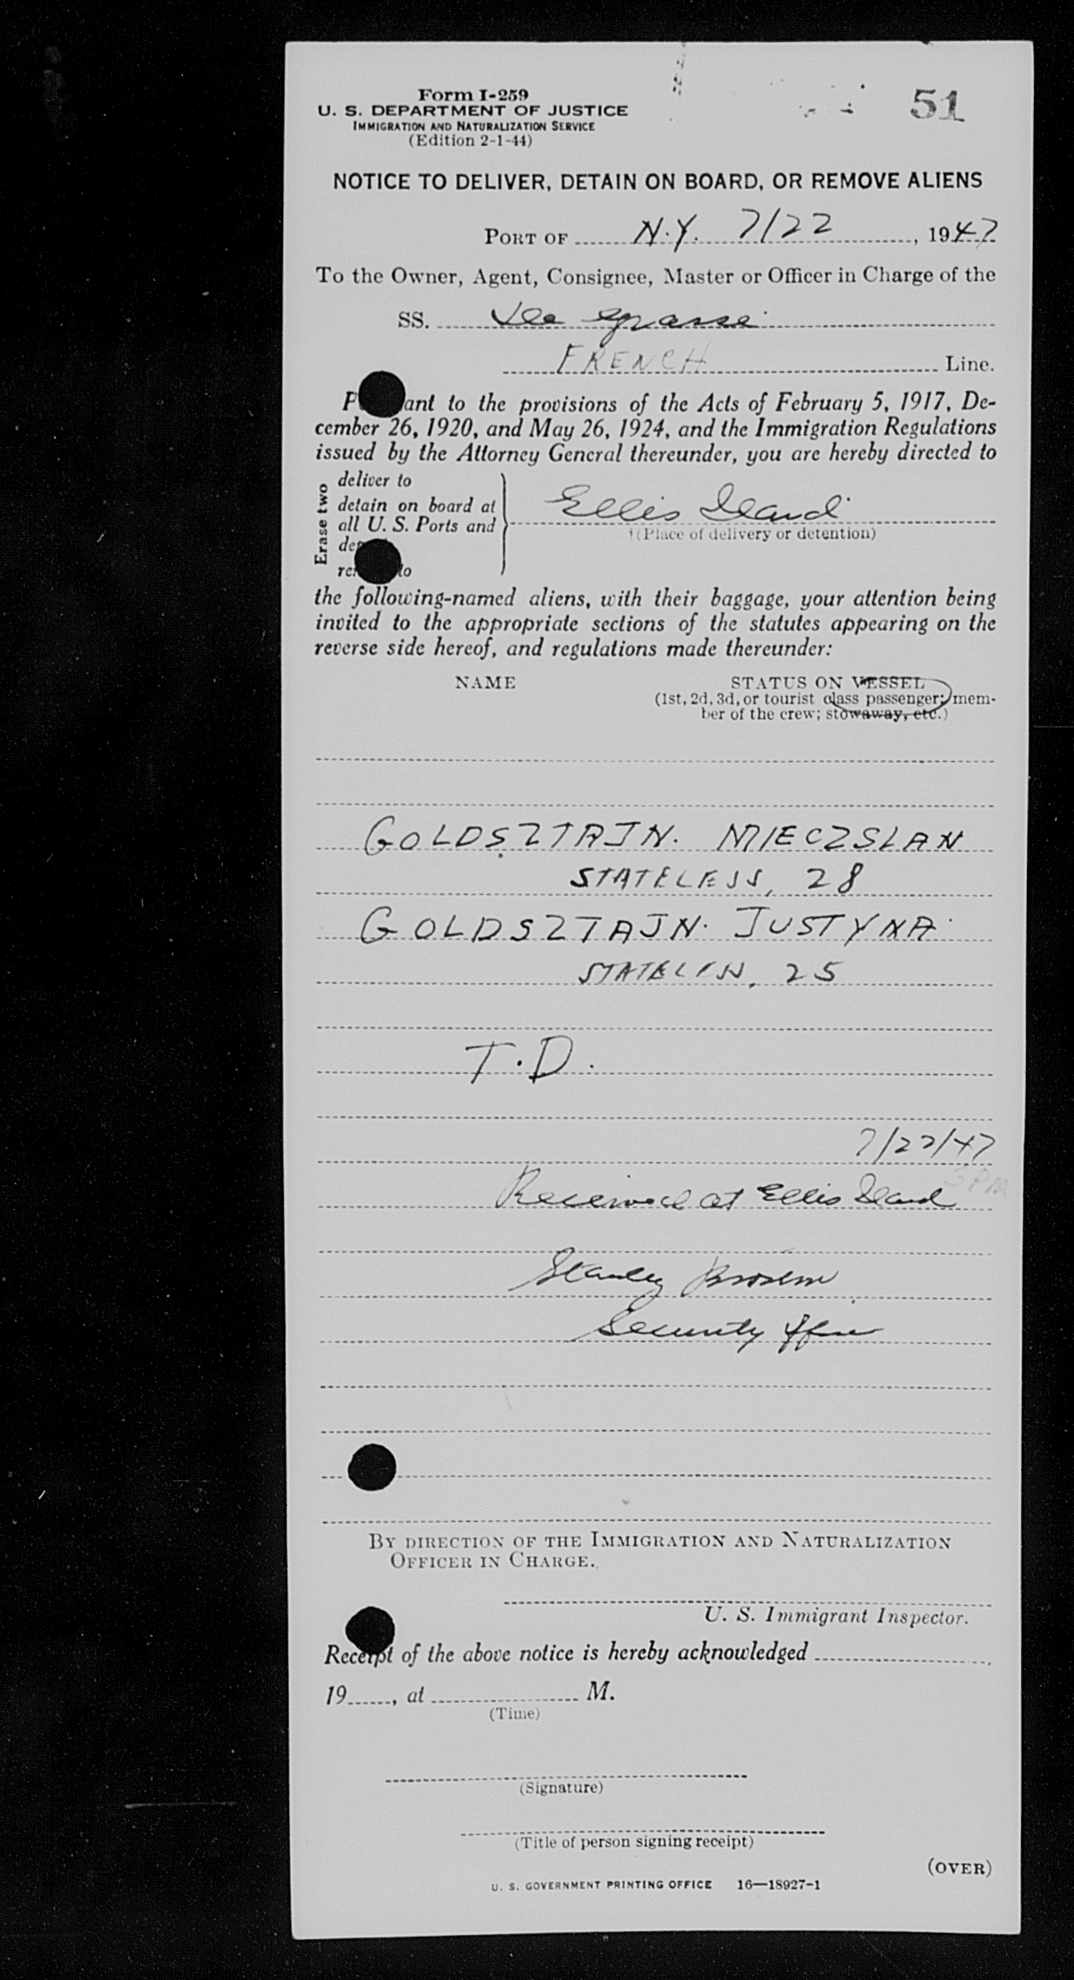 51
Form I-259
U. S. DEPARTMENT OF JUSTICE
IMMIGRATION AND NATURALIZATION SERVICE
(Edition 2-1-44)
NOTICE TO DELIVER, DETAIN ON BOARD, OR REMOVE ALIENS
PORT OF N.Y. 7/22, 1947
To the Owner, Agent, Consignee, Master or Officer in Charge of the
SS. De Grasse
FRENCH Line.
P ant to the provisions of the Acts of February 5, 1917, De-
cember 26, 1920, and May 26, 1924, and the Immigration Regulations
issued by the Attorney General thereunder, you are hereby directed to
Erase two
deliver to
detain on board at
all U. S. Ports and
Ellis Island
(Place of delivery or detention)
the following-named aliens, with their baggage, your attention being
invited to the appropriate sections of the statutes appearing on the
reverse side hereof, and regulations made thereunder:
NAME STATUS ON VESSEL
(1st, 2d, 3d, or tourist class passenger; mem-
ber of the crew; stowaway, etc.)
GOLDSZTAJN. MIECZSLAN
STATELESS, 28
GOLDSZTAJN. JUSTYNA
STATELESS, 25
T.D.
7/22/47
3PM
Received at Ellis Island
Stanley
Security
BY DIRECTION OF THE IMMIGRATION AND NATURALIZATION
OFFICER IN CHARGE.
U. S. Immigrant Inspector.
Receipt of the above notice is hereby acknowledged
19, at M.
(Time)
(Signature)
(Title of person signing receipt)
(OVER)
U. S. GOVERNMENT PRINTING OFFICE 16—18927-1